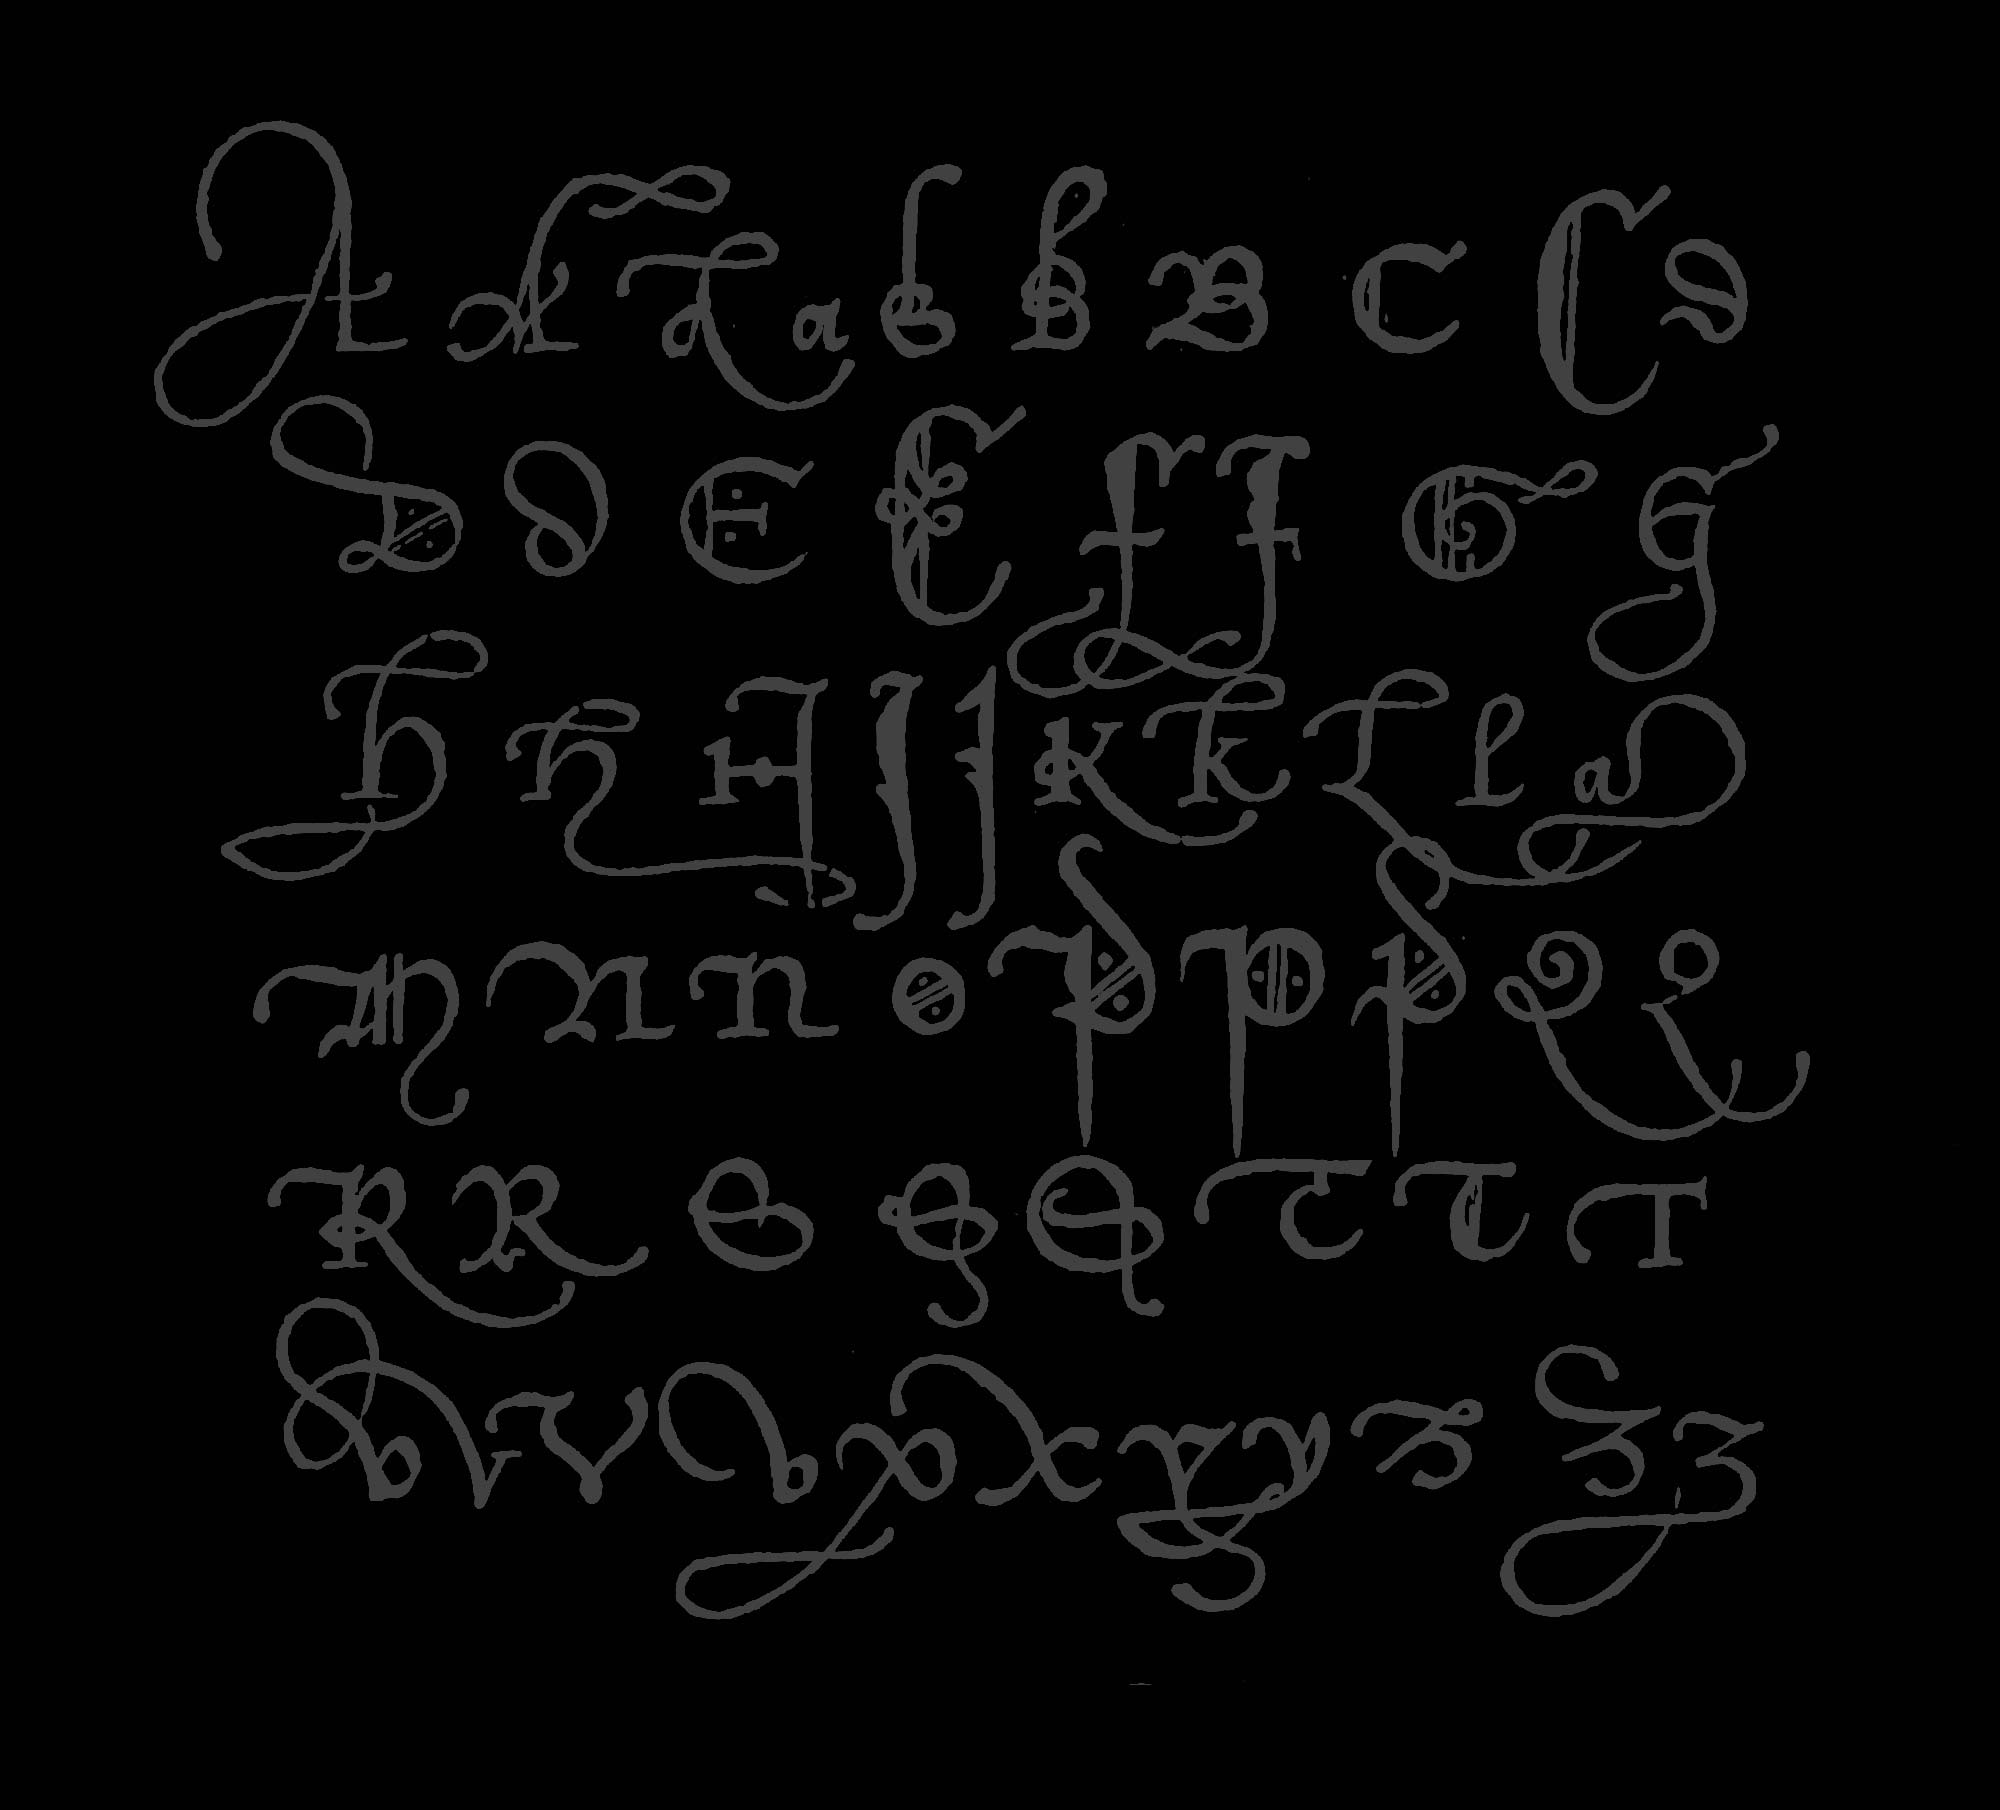 A A A a b b B C C D
D D E E F F G g
h h H J J K K L l M
M N n o P P P Q Q
R R S S S T T T
V V V X X Y Y Z Z Z